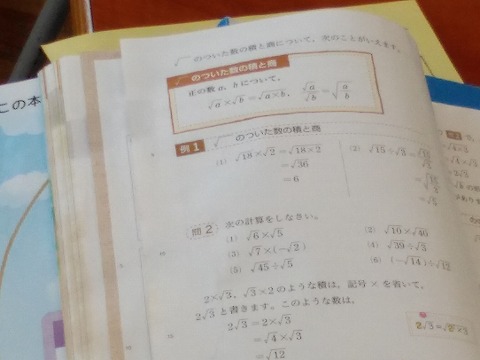 √ のついた数の積と商について，次のことがいえます。
√ のついた数の積と商
正の数 a, b について，
√a×√b=√a×b, √a/√b=√a/b
例1 √ のついた数の積と商
(1) √18×√2=√18×2
=√36
=6
(2) √15÷√3=√15/√3
=√15/3
=√5
問2 次の計算をしなさい。
(1) √6×√5
(2) √10×√40
(3) √7×(-√2)
(4) √39÷√3
(5) √45÷√5
(6) (-√14)÷√12
2×√3, √3×2 のような積は，記号 × を省いて，
2√3 と書きます。このような数は，
2√3=2×√3
=√4×√3
=√12
この本